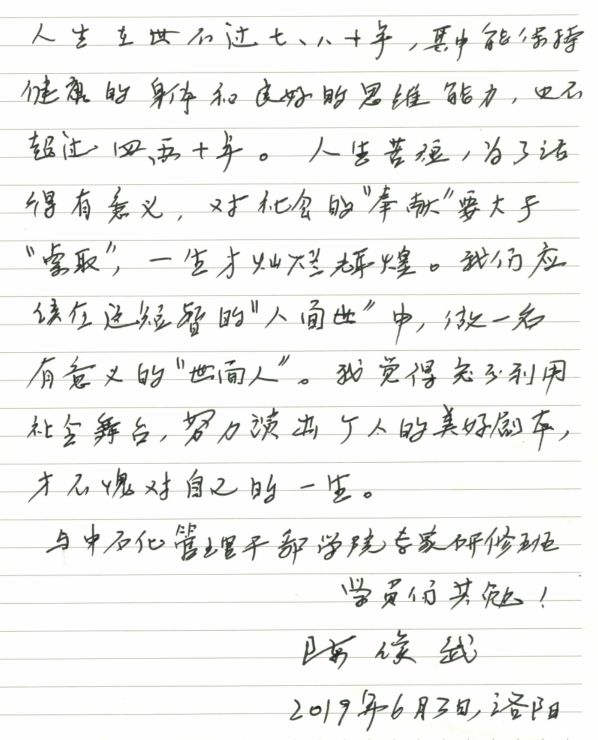 人生在世不过七、八十年，其中能保持
健康的身体和良好的思维能力，也不
超过四、五十年。人生苦短，为了活
得有意义，对社会的“奉献”要大于
“索取”，一生才灿烂辉煌。我们应
该在这短暂的“人间世”中，做一名
有意义的“世间人”。我觉得充分利用
社会舞台，努力演出个人的美好剧本，
才不愧对自己的一生。
与中石化管理干部学院专家研修班
学员们共勉！
陈俊武
2019年6月3日，洛阳